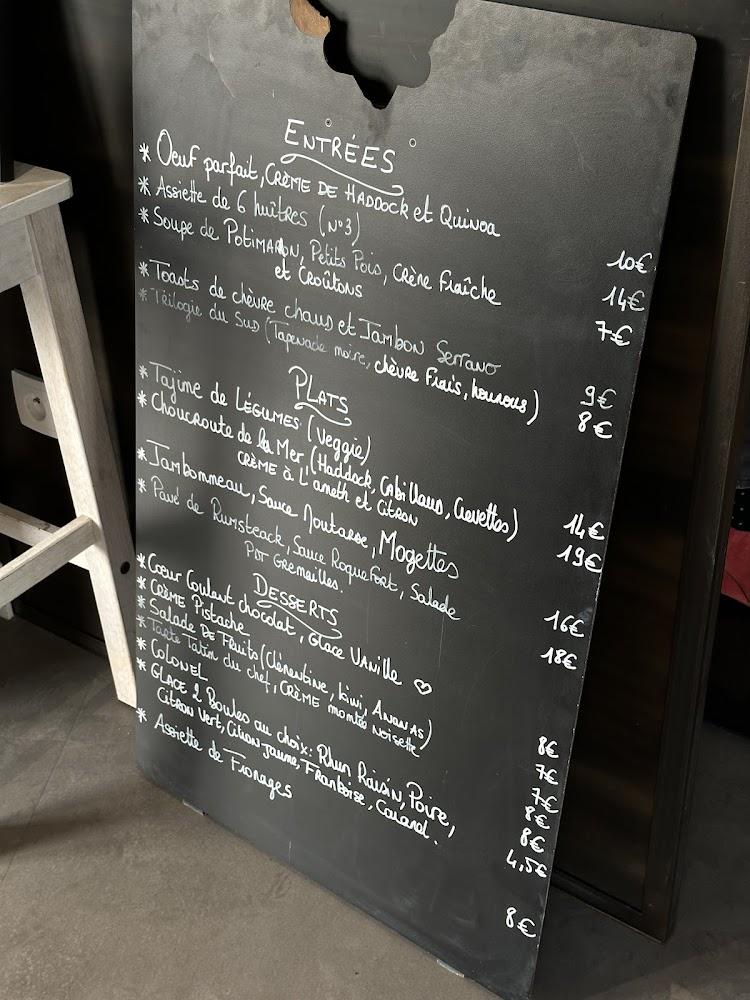 ENTRÉES
* Oeuf parfait, CRÈME DE HADDOCK et Quinoa 10€
* Assiette de 6 huîtres (N°3) 14€
* Soupe de POTIMARRON, Petits Pois, CRÈME FRAÎCHE 7€
et CROÛTONS
* Toasts de chèvre chaud et JAMBON SERRANO 9€
* Trilogie du SUD (Tapenade noire, chèvre FRAIS, houmous) 8€
PLATS
* Tajine de LÉGUMES (Veggie) 14€
* Choucroute de la Mer, (Haddock, CABILLAUD, Crevettes) 19€
CRÈME À L'aneth et CITRON
* Jambonneau, Sauce Moutarde, Mogettes 16€
* Pavé de Rumsteack, Sauce Roquefort, Salade 18€
POT GRENAILLES.
DESSERTS
* Coeur Coulant chocolat, Glace VANILLE ♡ 8€
* CRÈME PISTACHE 7€
* Salade DE FRUITS (Clémentine, kiwi, ANANAS) 7€
* Tarte Tatin du chef, CRÈME montée NOISETTE 8€
* COLONEL 8€
* GLACE 2 Boules au choix: Rhum Raisin, Poire, 4,5€
CITRON VERT, Citron jaune, Framboise, Caramel.
* Assiette de Fromages 8€